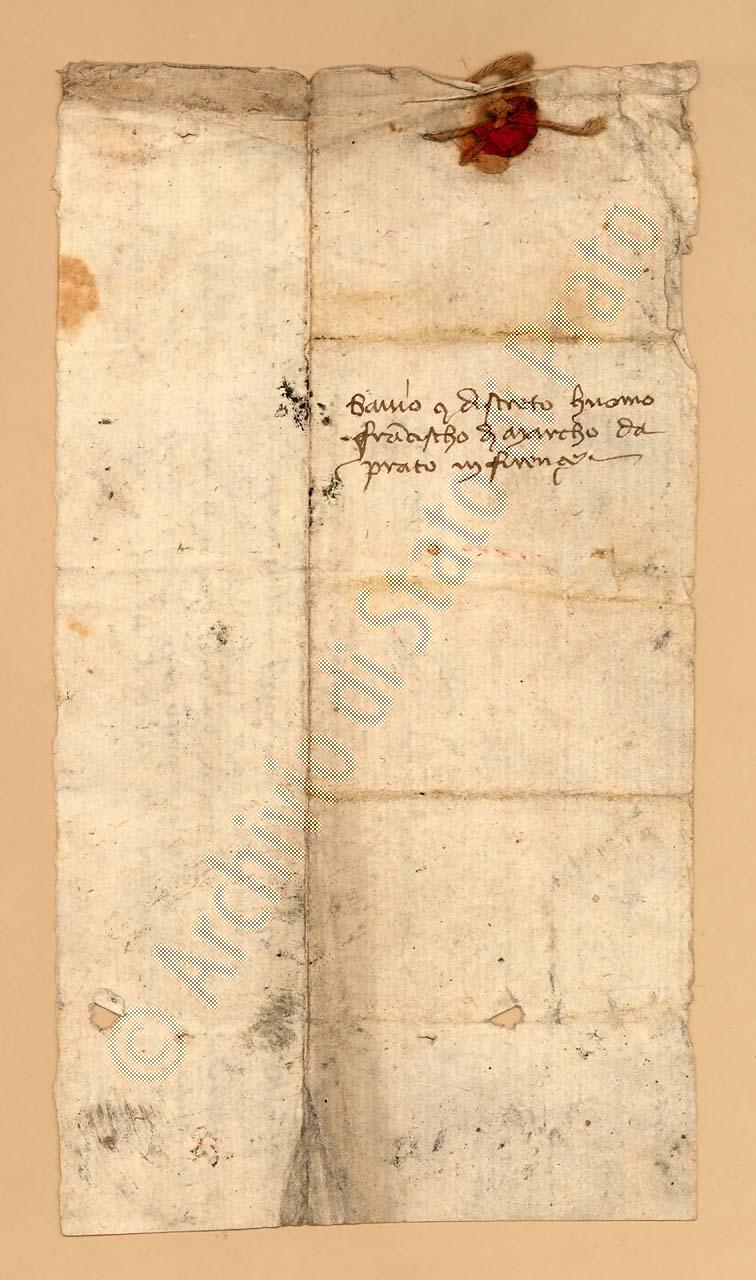 Savio e discreto huomo
Franciescho di Marcho da
Prato in Firenze
© Archivio di Stato di Prato